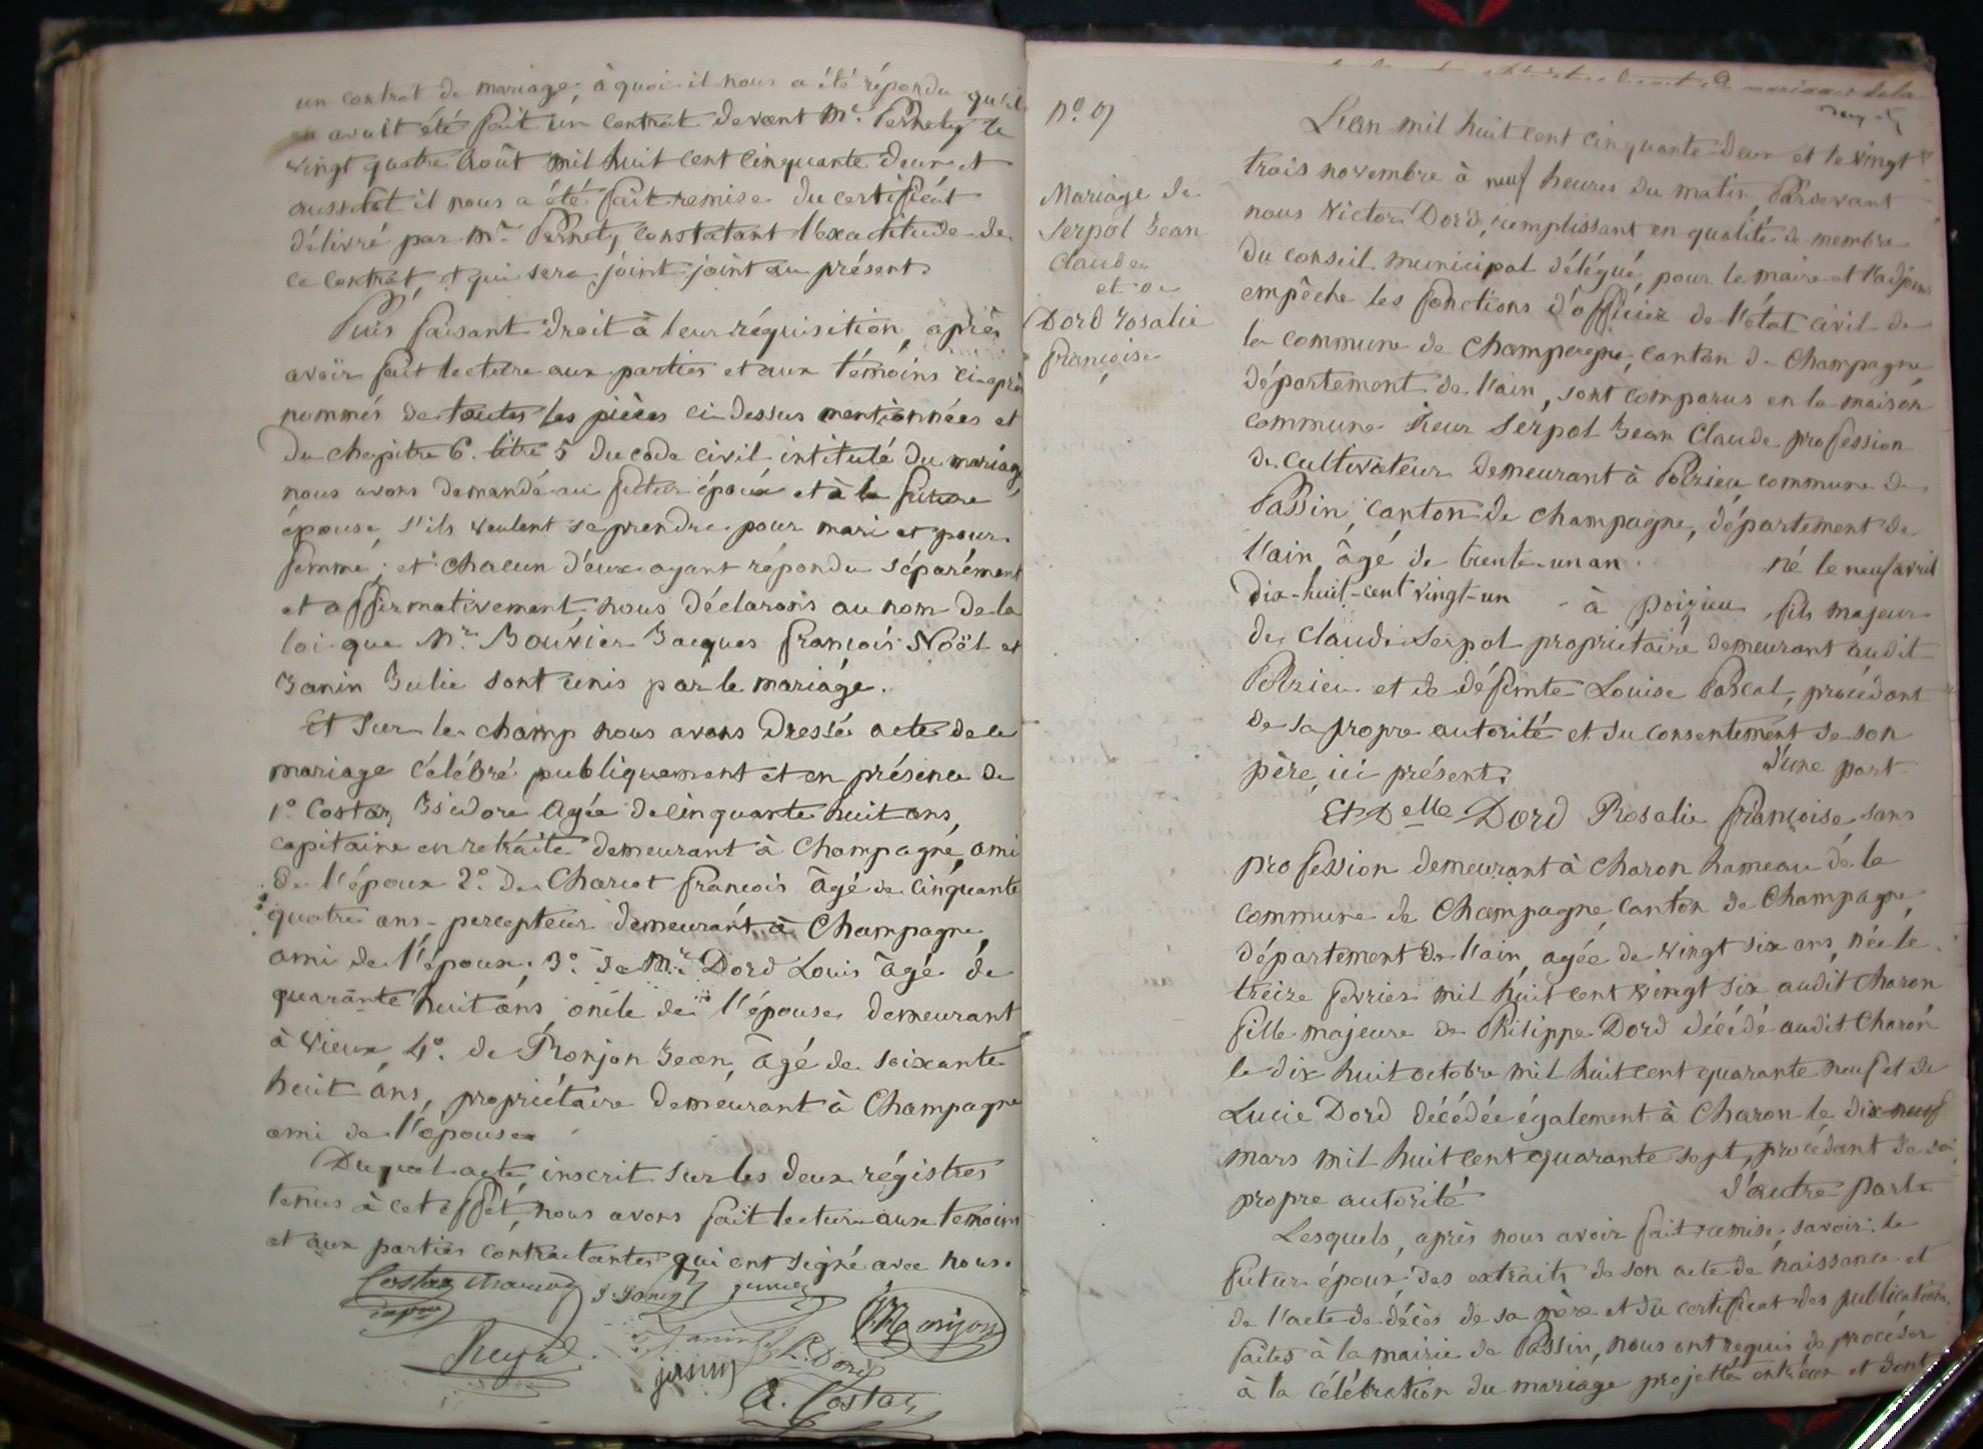 un contrat de mariage; à quoi il nous a été répondu qu'il
en avait été fait un contrat devant Me. Pernety le
vingt quatre Août mil huit cent cinquante deux et
aussitot il nous a été fait remise du certificat
délivré par Me. Pernety, constatant l'exactitude de
ce contrat, et qui sera joint joint au présent.
Puis faisant droit à leur réquisition, après
avoir fait lecture aux parties et aux témoins ci-après
nommés de toutes les pièces ci dessus mentionnées et
du chapitre 6. titre 5 du code civil intitulé du mariage,
nous avons demandé au futur époux et à la future
épouse, s'ils veulent se prendre pour mari et pour
femme; et chacun d'eux ayant répondu séparément
et affirmativement, nous déclarons au nom de la
loi que Mr. Bouvier Jacques françois Noël et
Janin Julie sont unis par le mariage.
Et sur le champ nous avons dressé acte de ce
mariage célébré publiquement et en présence de
1º Costaz Isidore Agée de cinquante huit ans,
capitaine en retraite demeurant à Champagne, ami
de l'époux 2º. De Charcot francois âgé de cinquante
quatre ans, percepteur demeurant à Champagne,
ami de l'époux. 3º. de Mr. Dord Louis âgé de
quarante huit ans, oncle de l'épouse, demeurant
à Vieux 4º. de Monjon Jean, âgé de soixante
huit ans, propriétaire demeurant à Champagne
ami de l'épouse
Duquel acte, inscrit sur les deux régistres
tenus à cet effet, nous avons fait lecture aux temoins
et aux parties contractantes qui ont signé avec nous.
Costaz
Janin
Monjon
L. Dord
A. Costaz
nº. 9
Mariage de
Serpol Jean
Claude
et de
Dord Rosalie
françoise
L'an mil huit cent cinquante deux et le vingt
trois novembre à neuf heures du matin, Pardevant
nous Victor Dord, remplissant en qualité de membre
du conseil municipal délégué, pour le maire et l'adjoint
empêche les fonctions d'officier de l'état civil de
la commune de Champagne, canton de Champagne
département de l'ain, sont comparus en la maison
commune Sieur Serpol Jean Claude profession
de cultivateur demeurant à Poizieu commune de
Passin, canton de Champagne, département de
l'ain, âgé de trente-un an né le neuf avril
dix-huit-cent vingt-un à poizieu, fils majeur
de Claude Serpol propriétaire demeurant audit
Poizieu et de défunte Louise Pascal, procédant
de sa propre autorité et du consentement de son
père, ici présent. d'une part
Et Delle Dord Rosalie françoise, sans
profession demeurant à Charon hameau de la
commune de Champagne, canton de Champagne,
département de l'ain, agée de vingt six ans, née le
treize fevrier mil huit cent vingt six audit Charon
fille majeure de Philippe Dord décédé audit Charon
le dix huit octobre mil huit cent quarante neuf et de
Lucie Dord décédée également à Charon le dix neuf
mars mil huit cent quarante sept, procédant de sa
propre autorité d'autre part.
Lesquels, après nous avoir fait remise, savoir: le
futur époux, des extraits de son acte de naissance et
de l'acte de décès de sa mère et du certificat des publications
faites à la mairie de Passin, nous ont requis de procéder
à la célébration du mariage projetté entr'eux et dont